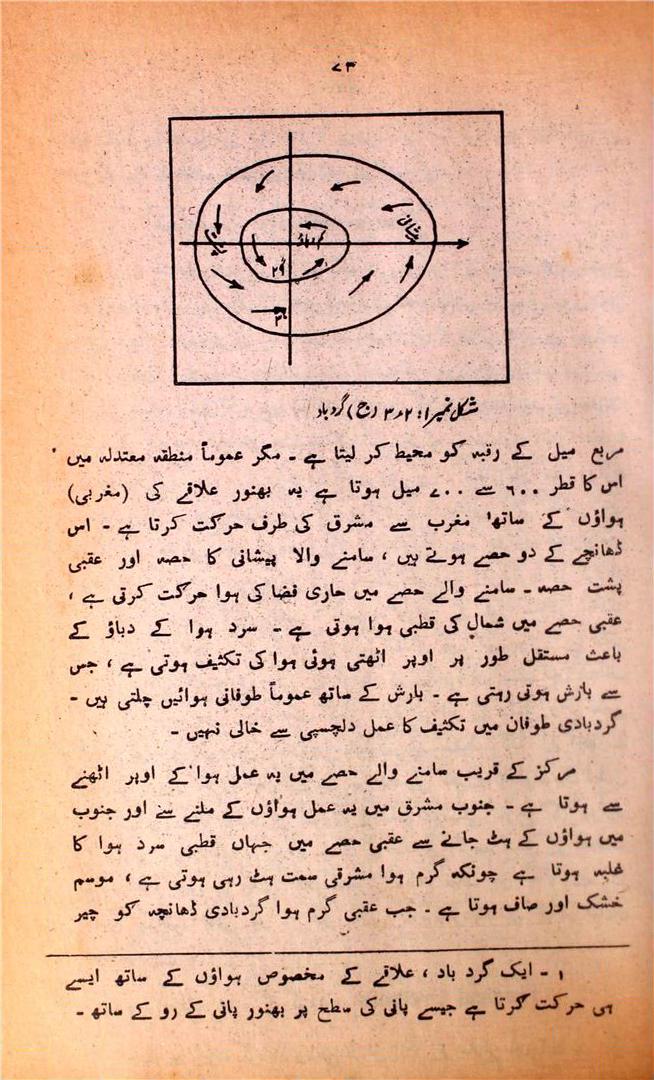 ۷۳
پیشانی
گردباد
پشت
۲۹
۳۰
شکل نمبر ۱: ۲ء۳ (ج) گردباد
مربع میل کے رقبہ کو محیط کر لیتا ہے ۔ مگر عموماً منطقہ معتدلہ میں
اس کا قطر ۶۰۰ سے ۷۰۰ میل ہوتا ہے یہ بھنور علاقے کی (مغربی)
ہواؤں کے ساتھ۱ مغرب سے مشرق کی طرف حرکت کرتا ہے ۔ اس
ڈھانچے کے دو حصے ہوتے ہیں ، سامنے والا پیشانی کا حصہ اور عقبی
پشت حصہ ۔ سامنے والے حصے میں حاری فضا کی ہوا حرکت کرتی ہے ،
عقبی حصے میں شمال کی قطبی ہوا ہوتی ہے ۔ سرد ہوا کے دباؤ کے
باعث مستقل طور پر اوپر اٹھتی ہوئی ہوا کی تکثیف ہوتی ہے ، جس
سے بارش ہوتی رہتی ہے ۔ بارش کے ساتھ عموماً طوفانی ہوائیں چلتی ہیں ۔
گردبادی طوفان میں تکثیف کا عمل دلچسپی سے خالی نہیں ۔
مرکز کے قریب سامنے والے حصے میں یہ عمل ہوا کے اوپر اٹھنے
سے ہوتا ہے ۔ جنوب مشرق میں یہ عمل ہواؤں کے ملنے سے اور جنوب
میں ہواؤں کے ہٹ جانے سے عقبی حصے میں جہاں قطبی سرد ہوا کا
غلبہ ہوتا ہے چونکہ گرم ہوا مشرقی سمت ہٹ رہی ہوتی ہے ، موسم
خشک اور صاف ہوتا ہے ۔ جب عقبی گرم ہوا گردبادی ڈھانچہ کو چیر
۱ ۔ ایک گرد باد ، علاقے کے مخصوص ہواؤں کے ساتھ ایسے
ہی حرکت کرتا ہے جیسے پانی کی سطح پر بھنور پانی کے رو کے ساتھ ۔